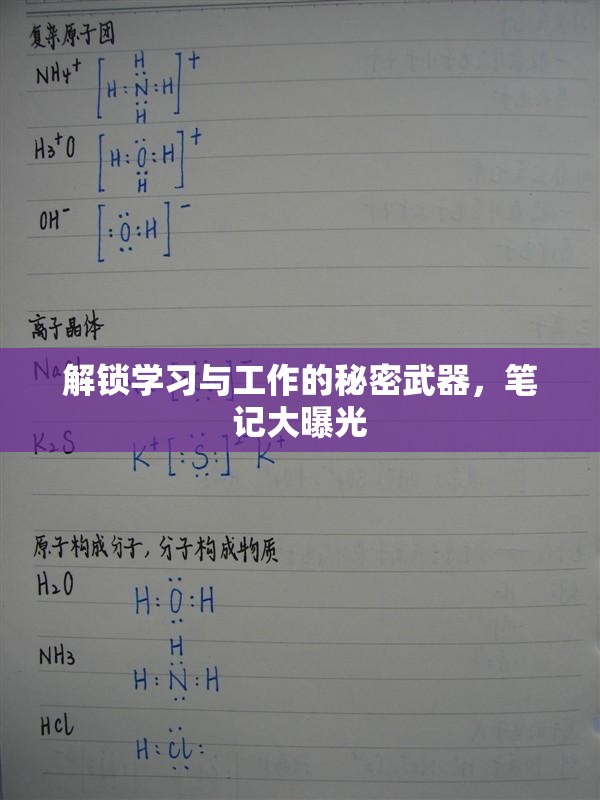 复杂原子团
NH₄⁺ [H:N:H]⁺
H
H
H₃⁺O [H:O:H]⁺
H
OH⁻ [:O:H]⁻
离子晶体
NaCl
解锁学习与工作的秘密武器，笔
记大曝光
K₂S K⁺[:S:]²⁻K⁺
原子构成分子，分子构成物质
H₂O H:O:H
H
NH₃ H:N:H
HCl H:Cl: